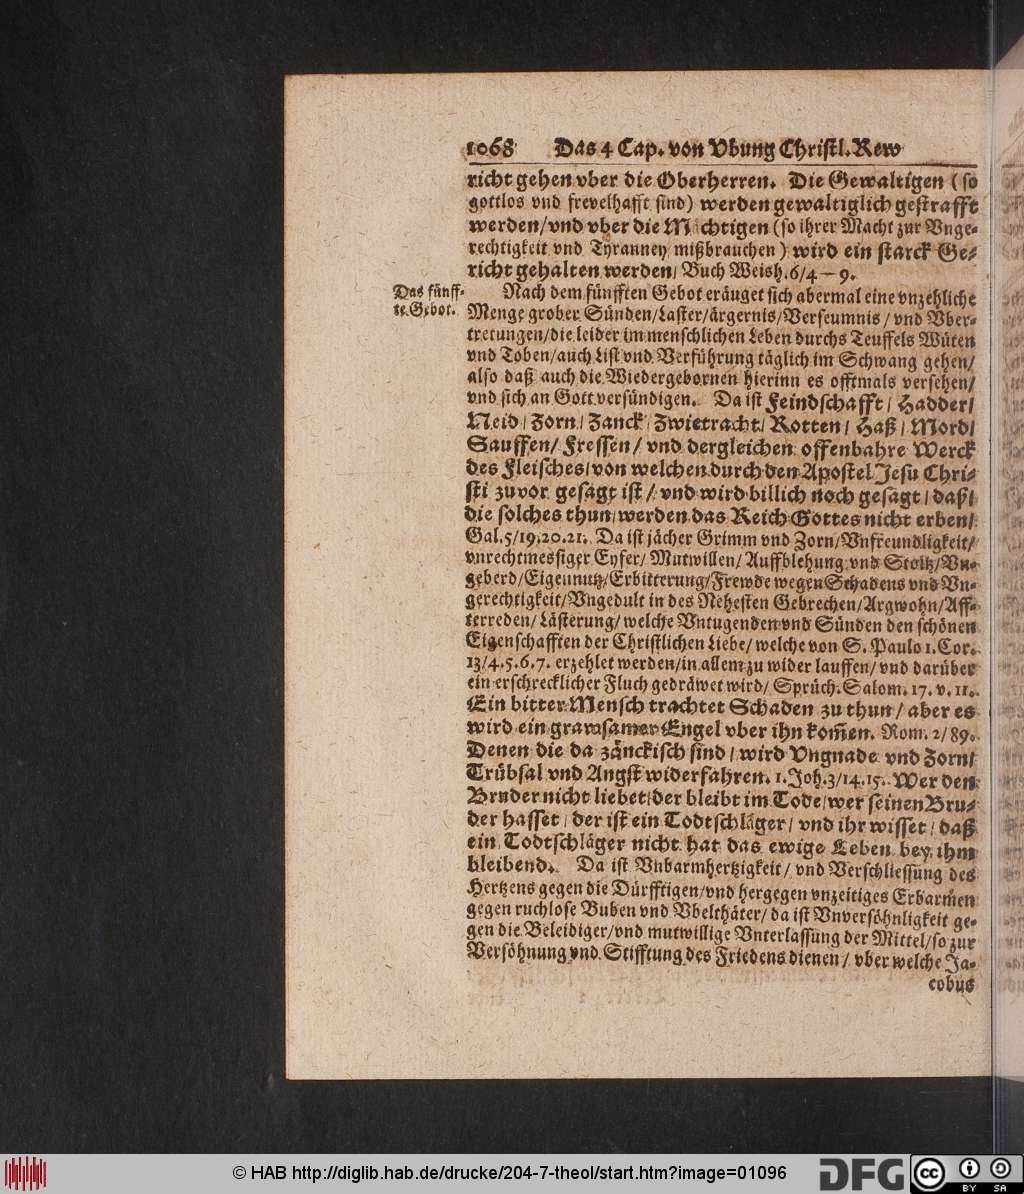 1068 Das 4 Cap. von Vbung Christl. Rew
richt gehen vber die Oberherren. Die Gewaltigen (so
gottlos vnd frevelhafft sind) werden gewaltiglich gestrafft
werden/vnd vber die Mächtigen (so ihrer Macht zur Vnge-
rechtigkeit vnd Tyranney mißbrauchen) wird ein starck Ge-
richt gehalten werden/ Buch Weish. 6/4–9.
Das fünff-
te Gebot.
Nach dem fünfften Gebot eräuget sich abermal eine vnzehliche
Menge grober Sünden/Laster/ärgernis/Verseumnis/ vnd Vber-
tretungen/die leider im menschlichen Leben durchs Teuffels Wüten
vnd Toben/auch List vnd Verführung täglich im Schwang gehen/
also daß auch die Wiedergebornen hierinn es offtmals versehen/
vnd sich an Gott versündigen. Da ist Feindschafft/ Hadder/
Neid/ Zorn/ Zanck/ Zwietracht/ Rotten/ Haß/ Mord/
Sauffen/ Fressen/ vnd dergleichen offenbahre Werck
des Fleisches/von welchen durch den Apostel Jesu Chri-
sti zuvor gesagt ist/ vnd wird billich noch gesagt/ daß/
die solches thun/werden das Reich Gottes nicht erben/
Gal. 5/19. 20. 21. Da ist jächer Grimm vnd Zorn/Vnfreundligkeit/
vnrechtmessiger Eyfer/ Mutwillen/ Auffblehung vnd Stoltz/Vn-
geberd/Eigennutz/Erbitterung/Frewde wegen Schadens vnd Vn-
gerechtigkeit/Vngedult in des Nehesten Gebrechen/Argwohn/Aff-
terreden/Lästerung/ welche Vntugenden vnd Sünden den schönen
Eigenschafften der Christlichen Liebe/ welche von S. Paulo 1. Cor.
13/4. 5. 6. 7. erzehlet werden/in allem zu wider lauffen/ vnd darüber
ein erschrecklicher Fluch gedräwet wird/ Sprüch. Salom. 17. v. 11.
Ein bitter Mensch trachtet Schaden zu thun/ aber es
wird ein grawsamer Engel vber ihn kom̃en. Rom. 2/ 89.
Denen die da zänckisch sind/ wird Vngnade vnd Zorn/
Trübsal vnd Angst widerfahren. 1. Joh. 3/14. 15. Wer den
Bruder nicht liebet/der bleibt im Tode/wer seinen Bru-
der hasset/ der ist ein Todtschläger/ vnd ihr wisset/ daß
ein Todtschläger nicht hat das ewige Leben bey ihm
bleibend. Da ist Vnbarmhertzigkeit/ vnd Verschliessung des
Hertzens gegen die Dürfftigen/vnd hergegen vnzeitiges Erbarmen
gegen ruchlose Buben vnd Vbelthäter/ da ist Vnversöhnligkeit ge-
gen die Beleidiger/vnd mutwillige Vnterlassung der Mittel/so zur
Versöhnung vnd Stifftung des Friedens dienen/ vber welche Ja-
cobus
© HAB http://diglib.hab.de/drucke/204-7-theol/start.htm?image=01096
DFG
cc
BY SA